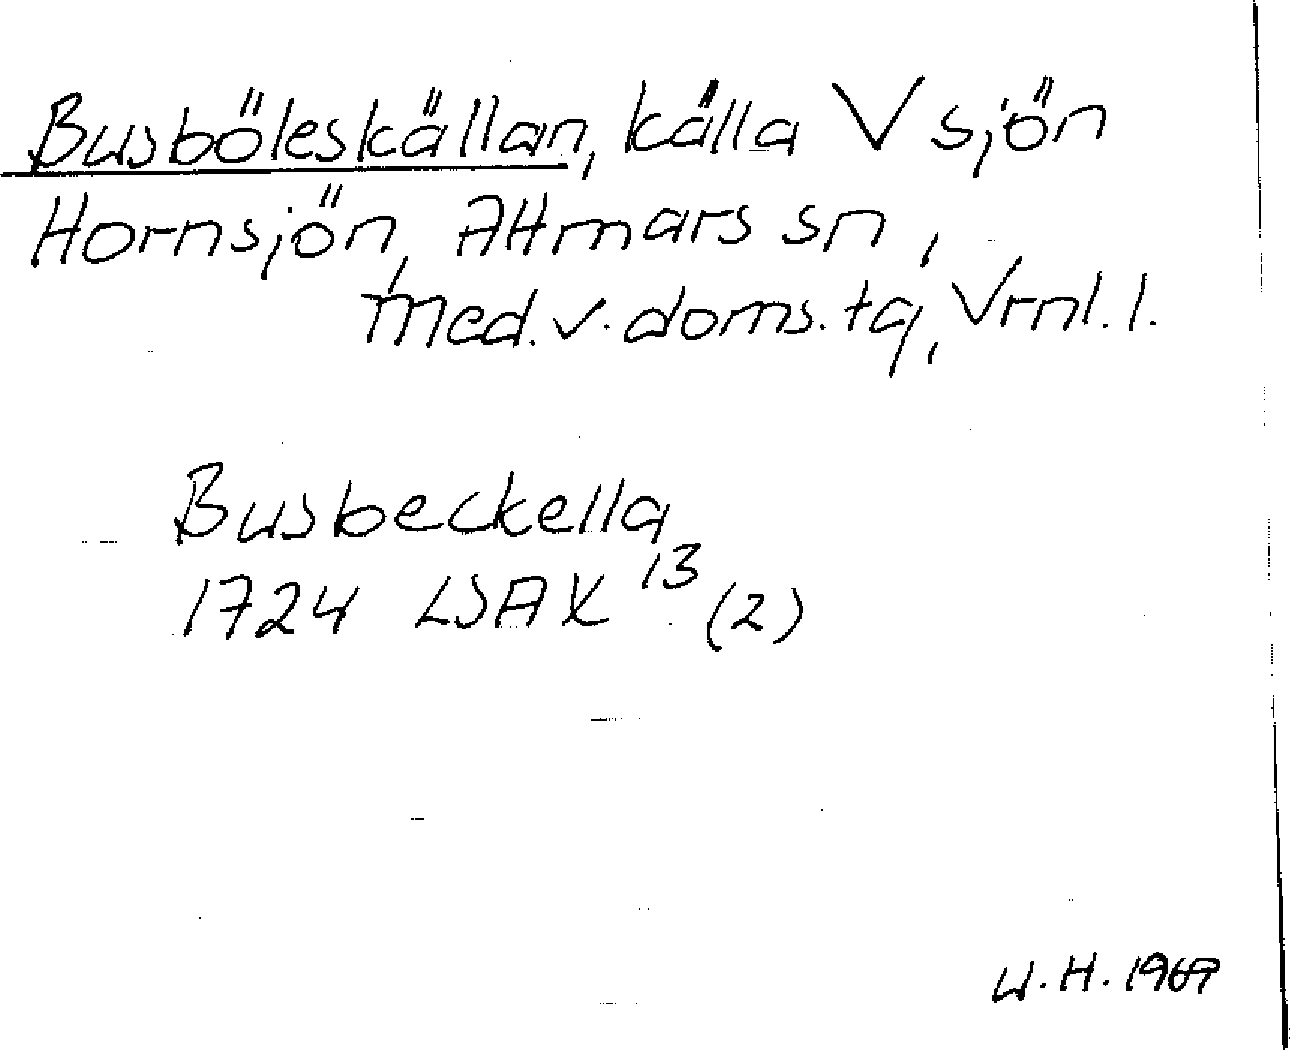 Busböleskällan, källa V sjön
Hornsjön, Attmars sn,
Med. v. doms. tg, Vrnl. l.
Busbeckella
1724 LSA X 13 (2)
W. H. 1969